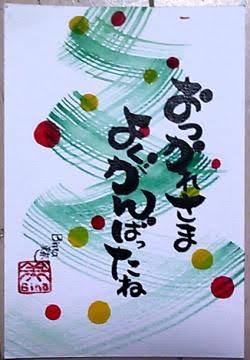 おつかれさま
よくがんばったね
Bina
Bina